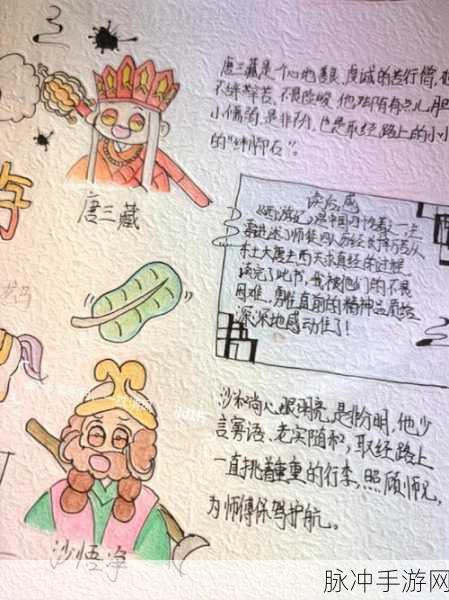 唐三藏是一个心地善良、虔诚的苦行僧,
不辞辛苦、不畏险峻。他却有有点儿胆
小懦弱、是非不分,也是取经路上的小小
的"绊脚石"。
唐三藏
读后感
《西游记》是中国四大名著之一,主
要讲述了师徒四人
东土大唐去西天求真经的过程。
读完了此书,我被他们的不畏
困难、勇往直前的精神品质给
深深地感动住了!
沙和尚心眼明亮、是非分明,他少
言寡语、老实随和,取经路上
一直挑着重重的行李,照顾师兄,
为师傅保驾护航。
沙悟净
脉冲手游网